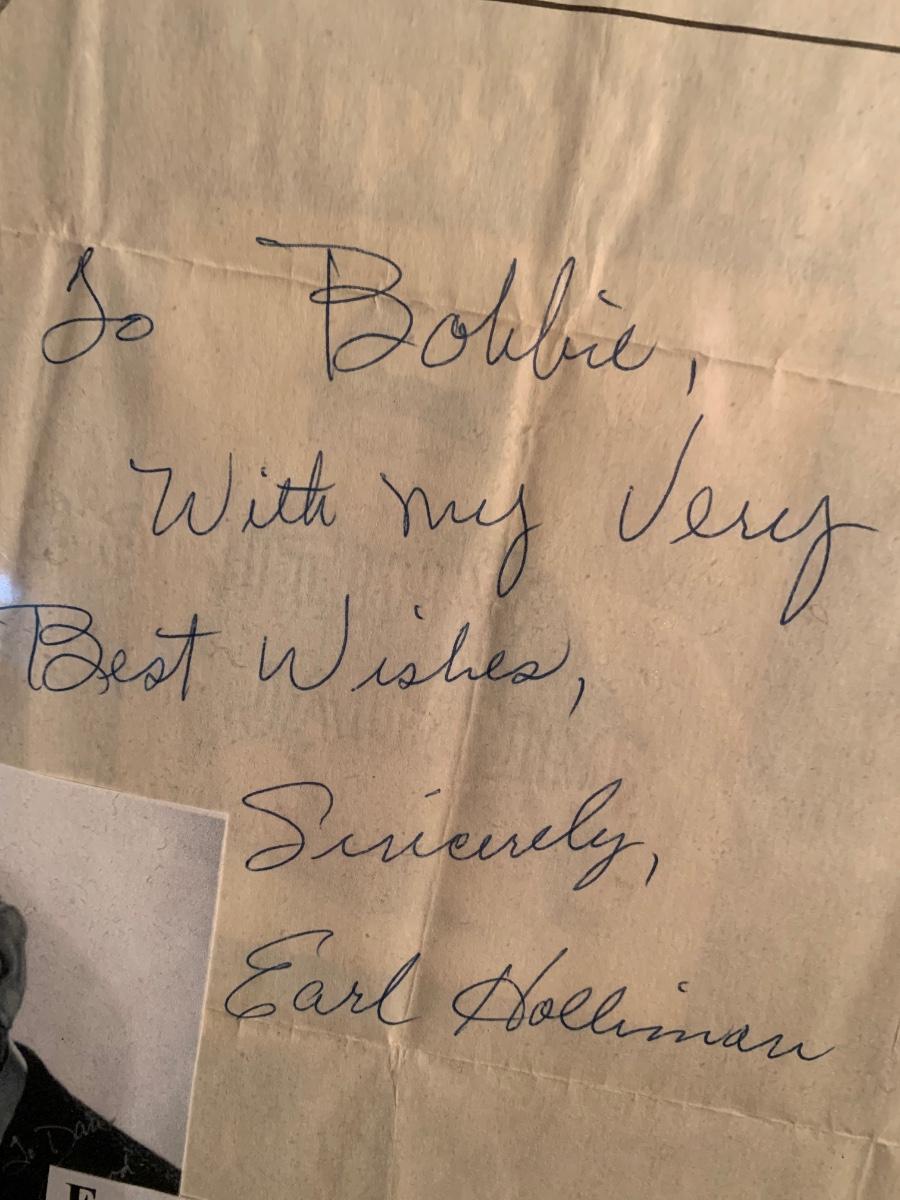 To Bobbie,
With my Very
Best Wishes,
Sincerely,
Earl Holliman
To Dave
E